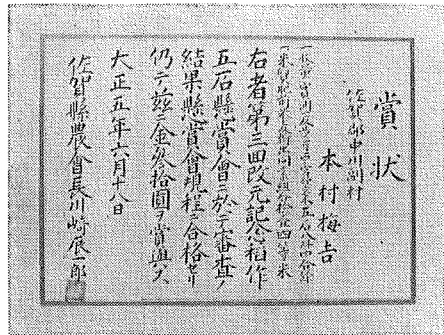 賞状
佐賀郡中川副村
本村梅吉
右者第三回改元記念稲作
五石懸賞會ニ於テ審査ノ
結果懸賞會規程ニ合格セリ
仍テ茲ニ金参拾圓ヲ賞與ス
大正五年六月十八日
佐賀縣農會長川崎辰一郎